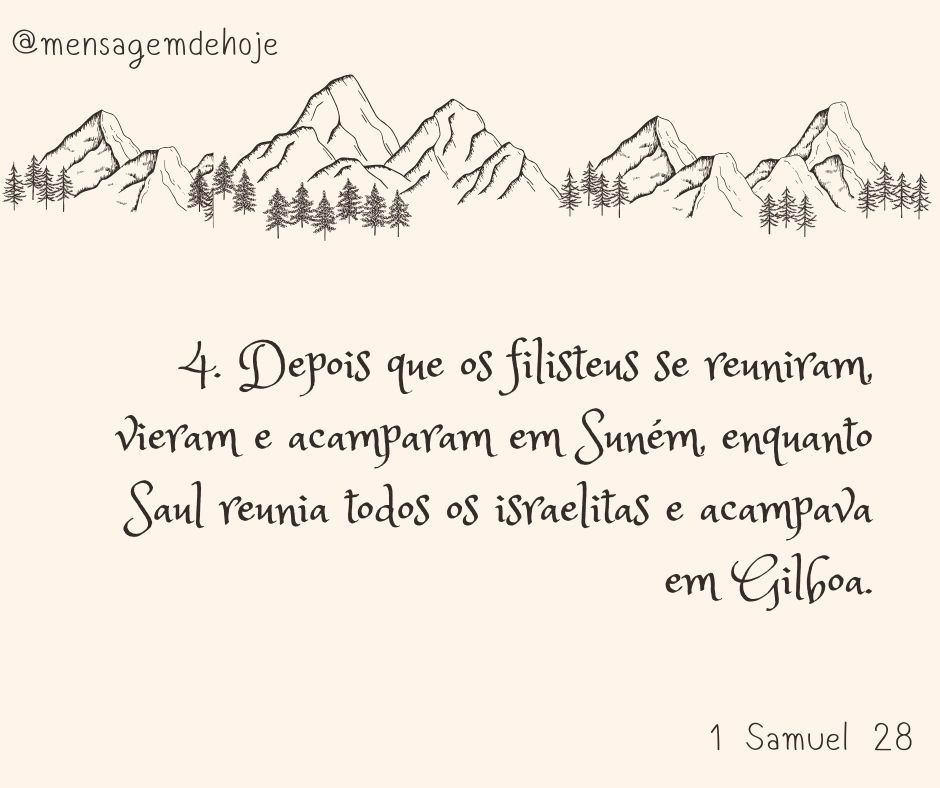 @mensagemdehoje
4. Depois que os filisteus se reuniram,
vieram e acamparam em Suném, enquanto
Saul reunia todos os israelitas e acampava
em Gilboa.
1 Samuel 28